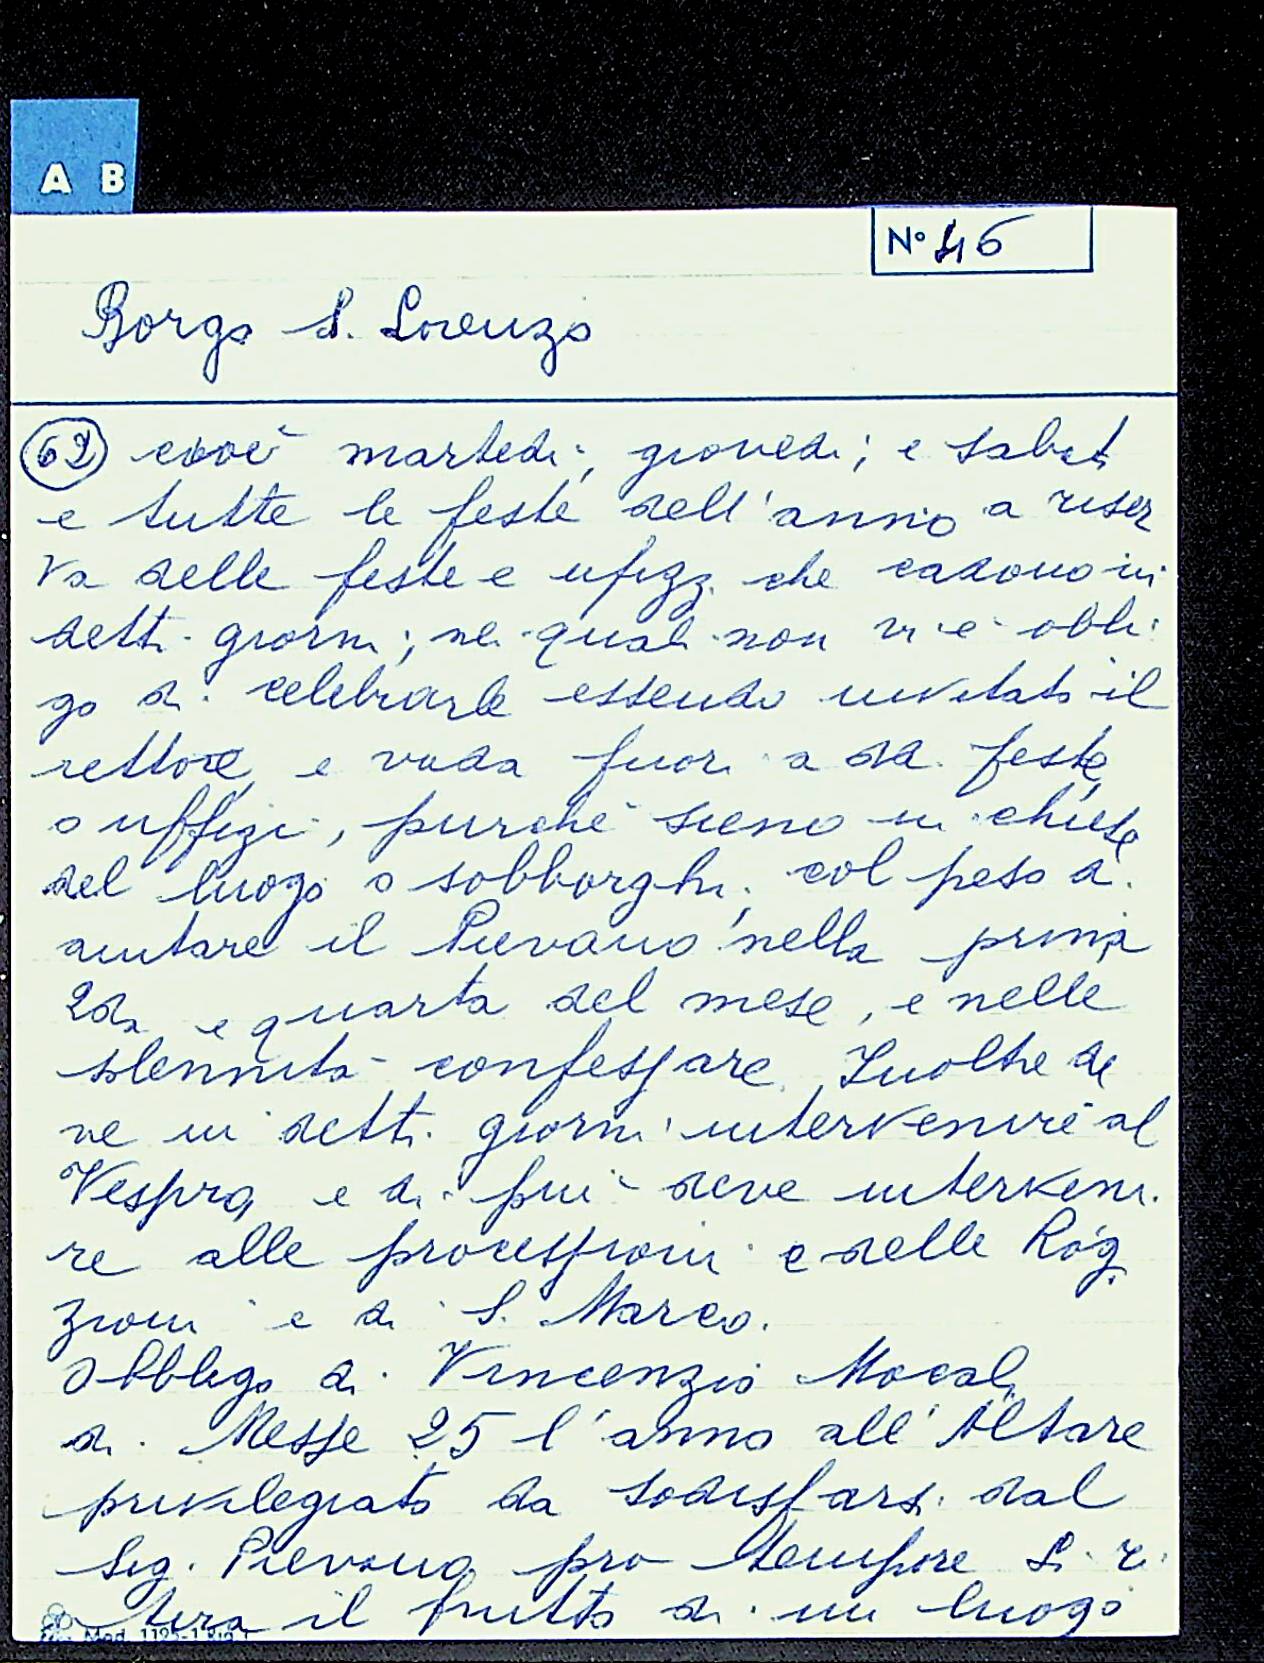 A B
N° 46
Borgo S. Lorenzo
62 cioè martedi, giovedi; e sabat
e tutte le feste dell'anno a riser
va delle feste e ufizz che cadono in
detti giorni; nei quali non vi è obli
go di celebrarle essendo invitato il
rettore, e vada fuori a da feste
o uffizi, purchè sieno in chiese
del luogo o sobborghi, col peso di
aiutare il Pievano nella prima
2da e quarta del mese, e nelle
solennità confessare. Inoltre de
ve in detti giorni intervenire al
Vespro, e di più deve interveni
re alle processioni e delle Roga
zioni e di S. Marco.
Obbligo di Vincenzio Mocali
di Messe 25 l'anno all'Altare
privilegiato da sodisfarsi dal
Sig. Pievano pro tempore Si ri
tira il frutto di un luogo
Mod. 1125-1